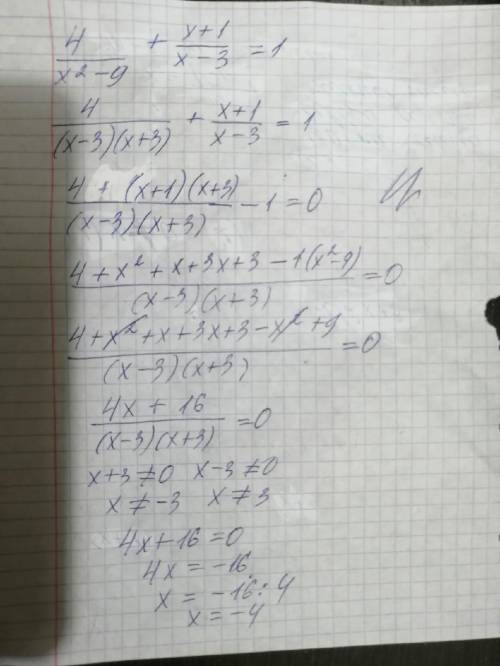 4/(x²-9) + (x+1)/(x-3) = 1
4/((x-3)(x+3)) + (x+1)/(x-3) = 1
(4 + (x+1)(x+3))/((x-3)(x+3)) - 1 = 0
(4 + x² + x + 3x + 3 - 1(x²-9))/((x-3)(x+3)) = 0
(4 + x² + x + 3x + 3 - x² + 9)/((x-3)(x+3)) = 0
(4x + 16)/((x-3)(x+3)) = 0
x+3 ≠ 0 x-3 ≠ 0
x ≠ -3 x ≠ 3
4x+16 = 0
4x = -16
x = -16 : 4
x = -4